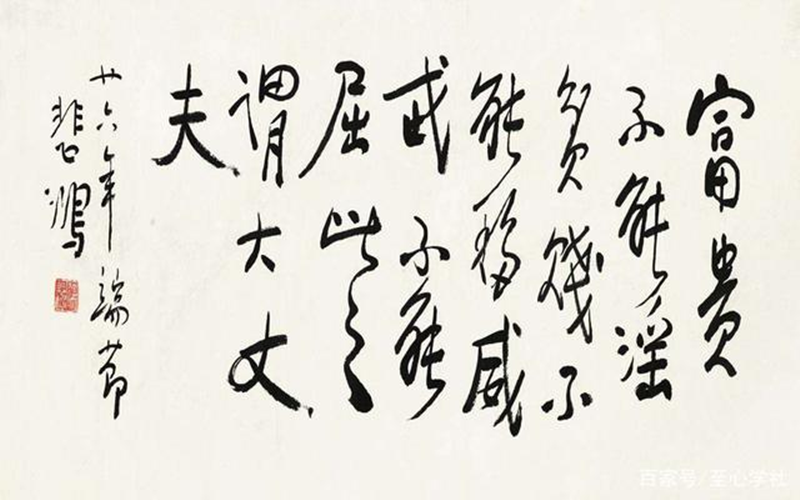 富貴
不能淫
貧賤不
能移威
武不能
屈此之
謂大丈
夫
廿六年端節
悲鴻
百家号/心学社